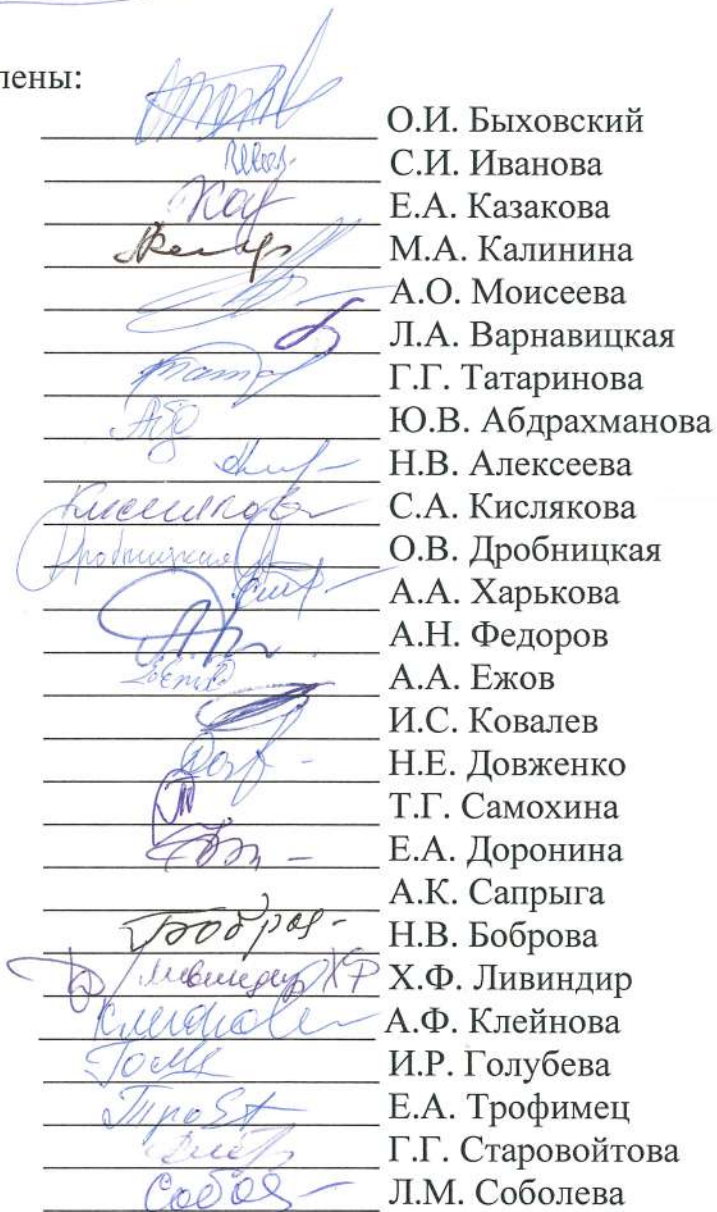 лены:
О.И. Быховский
С.И. Иванова
Е.А. Казакова
М.А. Калинина
А.О. Моисеева
Л.А. Варнавицкая
Г.Г. Татаринова
Ю.В. Абдрахманова
Н.В. Алексеева
С.А. Кислякова
О.В. Дробницкая
А.А. Харькова
А.Н. Федоров
А.А. Ежов
И.С. Ковалев
Н.Е. Довженко
Т.Г. Самохина
Е.А. Доронина
А.К. Сапрыга
Н.В. Боброва
Х.Ф. Ливиндир
А.Ф. Клейнова
И.Р. Голубева
Е.А. Трофимец
Г.Г. Старовойтова
Л.М. Соболева